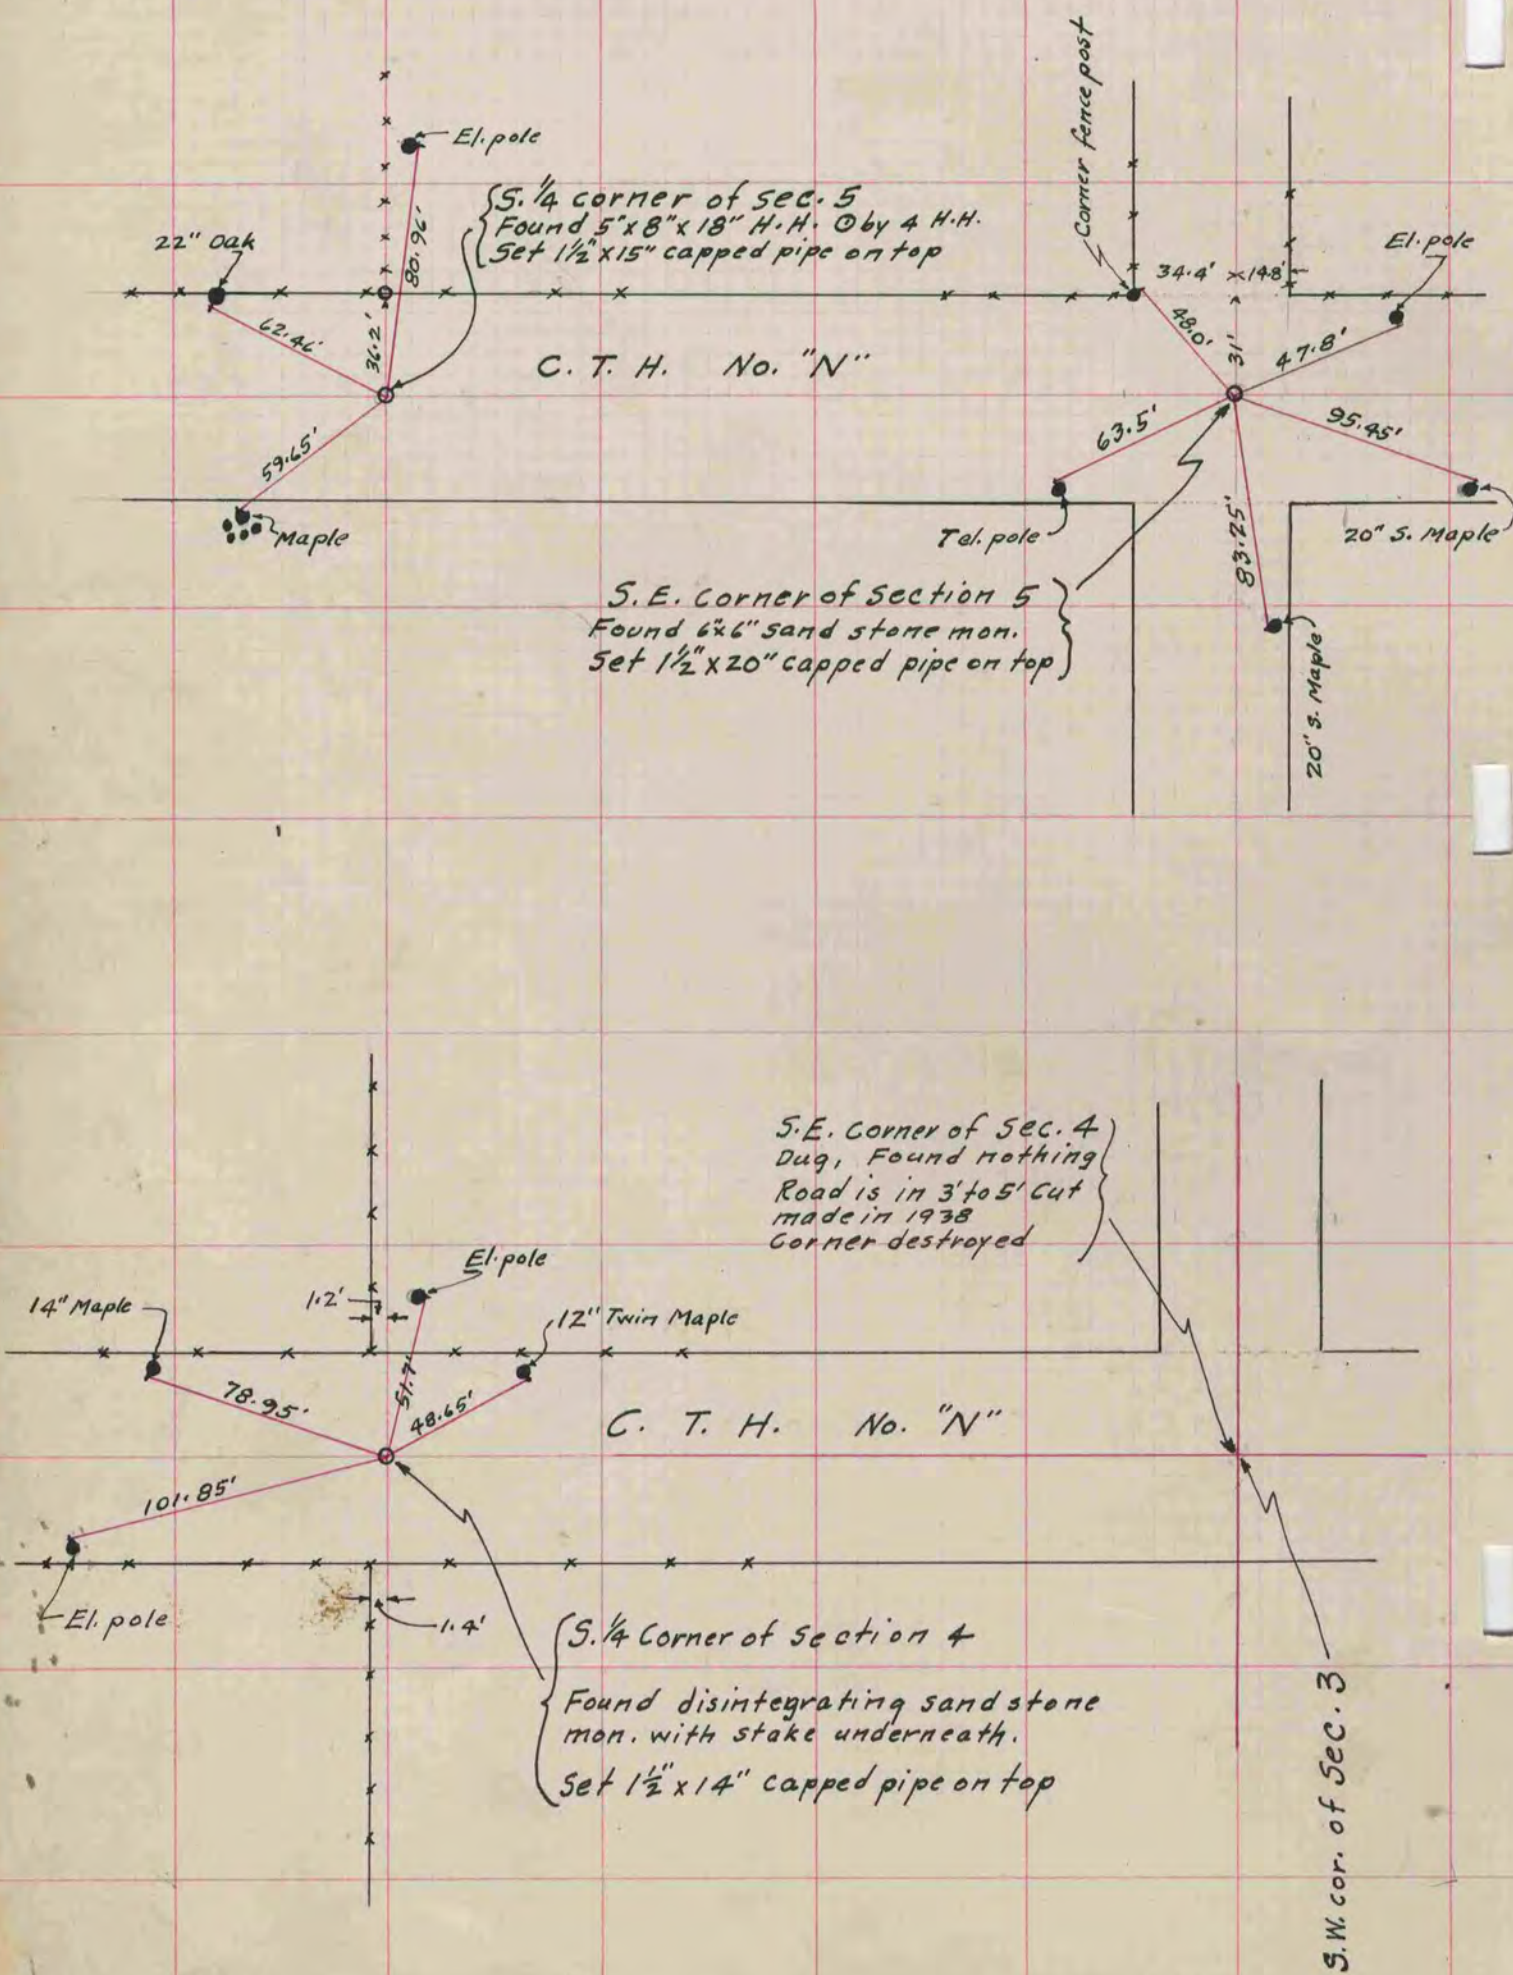 El. pole
S. 1/4 corner of sec. 5
Found 5"x8"x18" H.H. ⊙ by 4 H.H.
Set 1 1/2"x15" capped pipe on top
22" Oak
80.96'
62.46'
36.2'
59.65'
Maple
C. T. H. No. "N"
Corner fence post
34.4'
14.8'
El. pole
48.0'
31'
47.8'
63.5'
95.45'
83.25'
Tel. pole
20" S. Maple
20" S. Maple
S.E. Corner of Section 5
Found 6"x6" sand stone mon.
Set 1 1/2"x20" capped pipe on top
S.E. Corner of Sec. 4
Dug, Found nothing
Road is in 3' to 5' Cut
made in 1938
Corner destroyed
El. pole
1.2'
14" Maple
12" Twin Maple
78.95'
51.7'
48.65'
C. T. H. No. "N"
101.85'
El. pole
1.4'
S. 1/4 Corner of Section 4
Found disintegrating sand stone
mon. with stake underneath.
Set 1 1/2"x14" capped pipe on top
S.W. cor. of Sec. 3